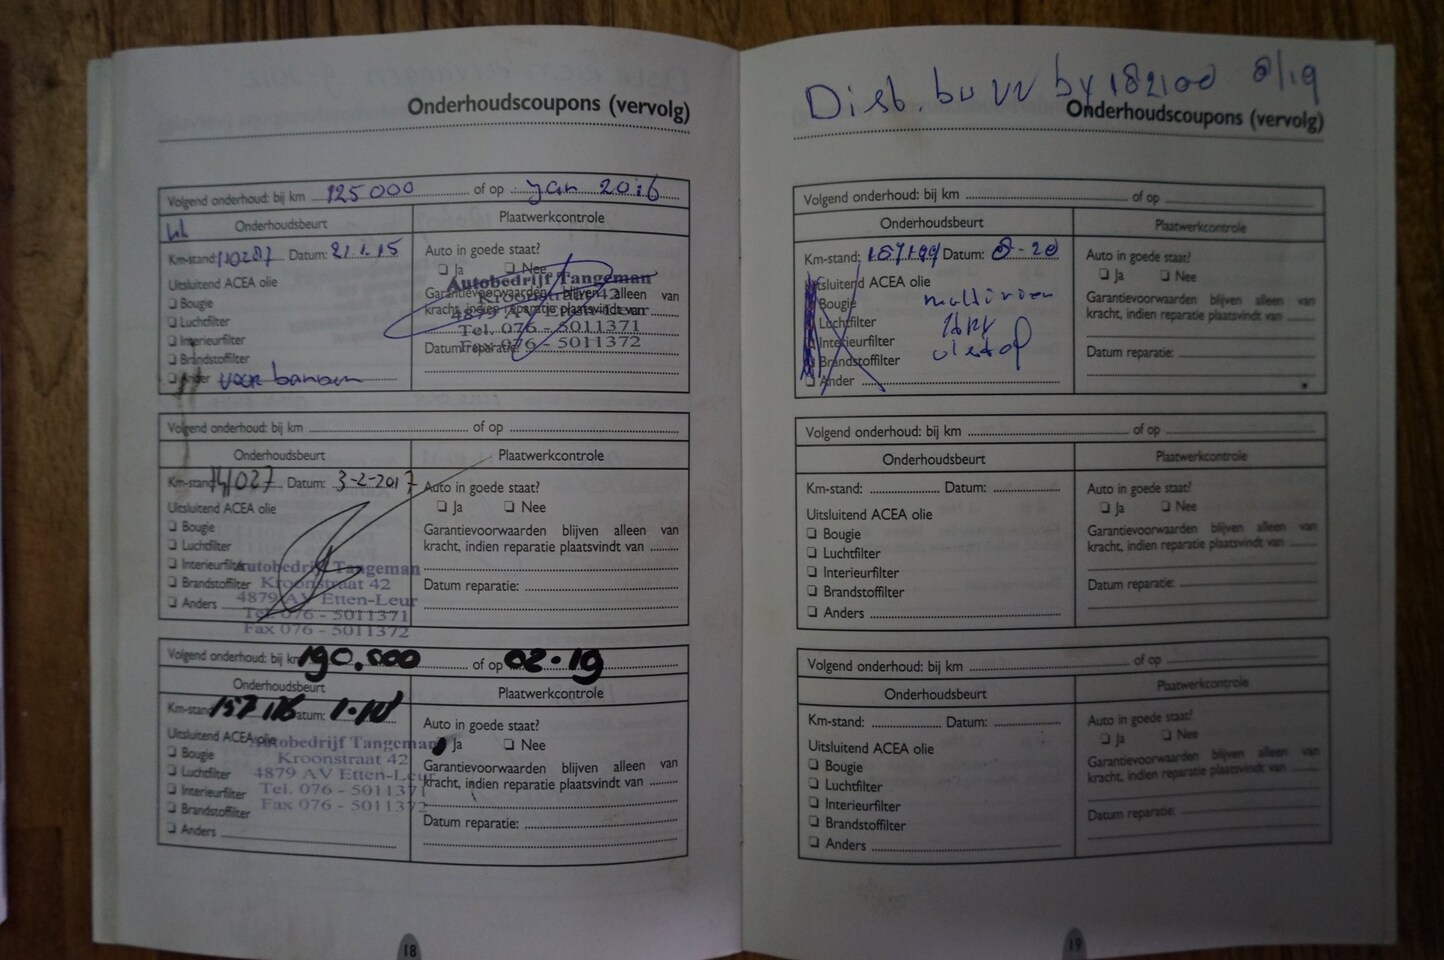 Onderhoudscoupons (vervolg)
Volgend onderhoud: bij km 125000 of op Jan 2016
Onderhoudsbeurt
Plaatwerkcontrole
Km-stand: Datum: 21.1.15
Uitsluitend ACEA olie
Bougie
Luchtfilter
Interieurfilter
Brandstoffilter
Ander voor banden
Auto in goede staat?
Ja Nee
Garantievoorwaarden blijven alleen van
kracht, indien reparatie plaatsvindt van
Datum reparatie:
Autobedrijf Tangeman
Kroonstraat 42
4879 AV Etten-Leur
Tel. 076 - 5011371
Fax 076 - 5011372
Volgend onderhoud: bij km of op
Onderhoudsbeurt
Plaatwerkcontrole
Km-stand 141037 Datum: 3-2-2017
Uitsluitend ACEA olie
Bougie
Luchtfilter
Interieurfilter
Brandstoffilter
Anders
Autobedrijf Tangeman
Kroonstraat 42
4879 AV Etten-Leur
Tel. 076 - 5011371
Fax 076 - 5011372
Auto in goede staat?
Ja Nee
Garantievoorwaarden blijven alleen van
kracht, indien reparatie plaatsvindt van
Datum reparatie:
Volgend onderhoud: bij km 190.000 of op 02.19
Onderhoudsbeurt
Plaatwerkcontrole
Km-stand Datum:
Uitsluitend ACEA olie
Bougie
Luchtfilter
Interieurfilter
Brandstoffilter
Anders
Autobedrijf Tangeman
Kroonstraat 42
4879 AV Etten-Leur
Tel. 076 - 5011371
Fax 076 - 5011372
Auto in goede staat?
Ja Nee
Garantievoorwaarden blijven alleen van
kracht, indien reparatie plaatsvindt van
Datum reparatie:
18
Disb. by 182100 8/19
Onderhoudscoupons (vervolg)
Volgend onderhoud: bij km of op
Onderhoudsbeurt
Plaatwerkcontrole
Km-stand: Datum: 8-20
Uitsluitend ACEA olie
Bougie
Luchtfilter
Interieurfilter
Brandstoffilter
Ander
Auto in goede staat?
Ja Nee
Garantievoorwaarden blijven alleen van
kracht, indien reparatie plaatsvindt van
Datum reparatie:
Volgend onderhoud: bij km of op
Onderhoudsbeurt
Plaatwerkcontrole
Km-stand: Datum:
Uitsluitend ACEA olie
Bougie
Luchtfilter
Interieurfilter
Brandstoffilter
Anders
Auto in goede staat?
Ja Nee
Garantievoorwaarden blijven alleen van
kracht, indien reparatie plaatsvindt van
Datum reparatie:
Volgend onderhoud: bij km of op
Onderhoudsbeurt
Plaatwerkcontrole
Km-stand: Datum:
Uitsluitend ACEA olie
Bougie
Luchtfilter
Interieurfilter
Brandstoffilter
Anders
Auto in goede staat?
Ja Nee
Garantievoorwaarden blijven alleen van
kracht, indien reparatie plaatsvindt van
Datum reparatie:
19